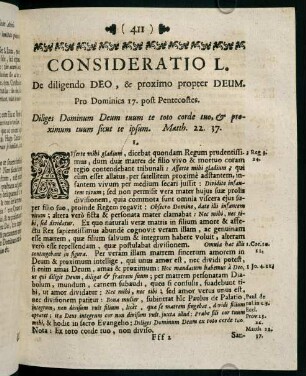 ( 411 )
CONSIDERATIO L.
De diligendo DEO, & proximo propter DEUM.
Pro Dominica 17. post Pentecostes.
Diliges Dominum Deum tuum te toto corde tuo, & pro-
ximum tuum sicut te ipsum. Matth. 22. 37.
1.
Afferte mihi gladium, dicebat quondam Regum prudentissi-
mus, dum duæ matres de filio vivo & mortuo coram
regio contendebant tribunali: Afferte mihi gladium; qui
cum esset allatus, per satellitem proximè adstantem, in-
fantem vivum per medium secari jussit: Dividite infan-
tem vivum; sed non permisit vera mater hujus suæ prolis
divisionem, quia commota sunt omnia viscera ejus su-
per filio suo, proinde Regem rogavit: Obsecro Domine, date illi infantem
vivum; altera verò ficta & personata mater clamabat: Nec mihi, nec ti-
bi, sed dividatur. Ex quo naturali veræ matris in filium amore & affe-
ctu Rex sapientissimus abunde cognovit veram illam, ac genuinam
esse matrem, quæ filium salvum & integrum habere voluit, alteram
verò esse repellendam, quæ postulabat divisionem. Omnia hæc alia
contingebant in figura. Per veram illam matrem sincerum amorem in
Deum & proximum intellige, qui unus amor est, nec dividi potest,
si enim amas Deum, amas & proximum: Hoc mandatum habemus à Deo,
ut qui diligit Deum, diligat & fratrem suum; per matrem personatam Dia-
bolum, mundum, carnem subaudi, quòd si consuli, suadebunt tibi
ut, ut amor dividatur: Nec mihi, nec tibi; sed amor verus unus est,
nec divisionem patitur: Bona mulier, subjicit hic Paulus de Palatio
3 Reg. 3.
24.
1. Cor. 10.
11.
1. Jo. 4. 21.
Matth.
22.
37.
mihi, & hodie in sacro Evangelio: Diliges Dominum Deum ex toto corde tuo.
Nota: Ex toto corde tuo, non diviso.
Fff 2
San-